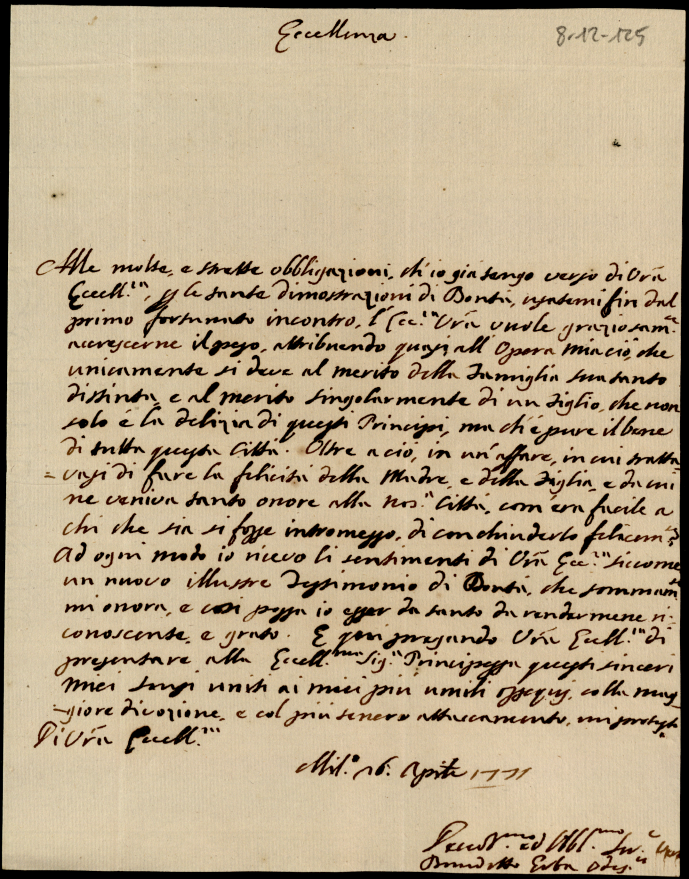 Eccellenza.
8-12-125
Alle molte, e strette obbligazioni, ch'io già tengo verso di Vra
Eccell.za, p le tante dimostrazioni di Bontà, usatemi fin dal
primo fortunato incontro, l'Ecc.za Vra vuole graziosam.te
accrescerne il peso, attribuendo quasi all'Opera mia ciò, che
unicamente si deve al merito della Famiglia sua tanto
distinta, e al merito singolarmente di un Figlio, che non
solo è la delizia di questi Principi, ma ch'è pure il bene
di tutta questa Città. Oltre a ciò, in un'affare, in cui tratta-
=vasi di fare la felicità della Madre, e della Figlia, e da cui
ne veniva tanto onore alla nos.a Città, com'era facile a
chi che sia si fosse intromesso, di conchiuderlo felicem.te
Ad ogni modo io ricevo li sentimenti di Vra Ecc.za siccome
un nuovo illustre Testimonio di Bontà, che sommam.
mi onora, e così possa io esser da tanto da rendermene ri-
conoscente, e grato. E qui pregando Vra Ecell.za di
presentare alla Eccell.ma Sig.a Principessa questi sinceri
miei sensi uniti ai miei più umili ossequj, colla mag-
-giore divozione, e col più tenero attaccamento, mi protesto
Di Vra Eccell.za
Mil.o 16. Aprile 1771
ed Obbl.mo Ser.e
Benedetto Erba Odes.